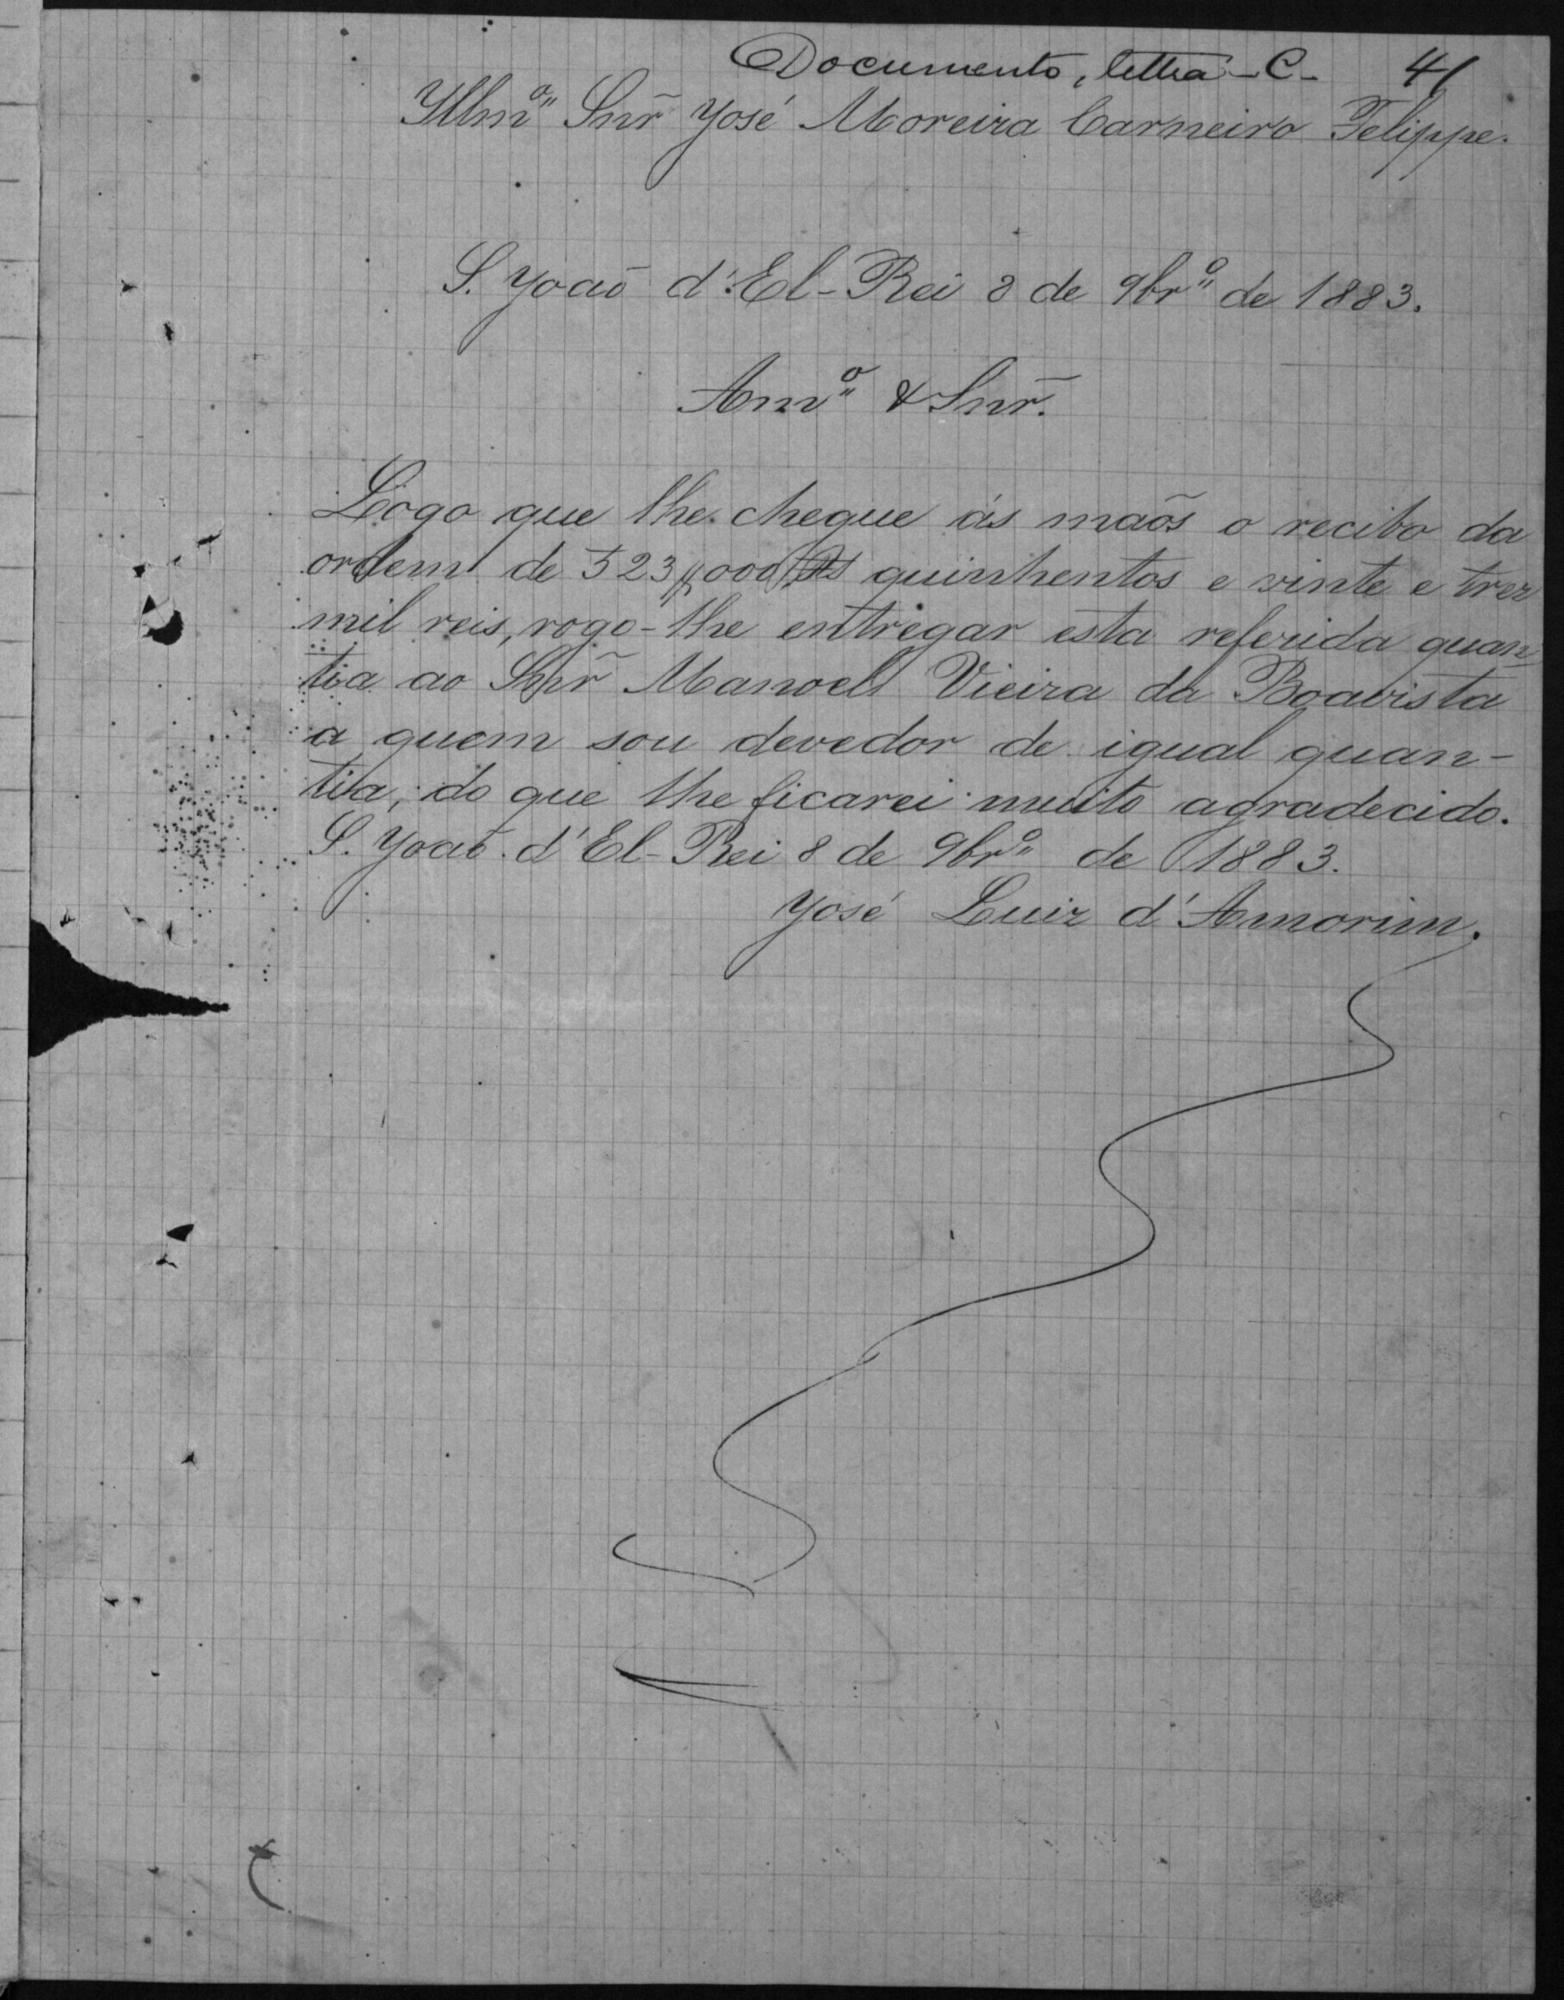 Documento, lettra - C - 41
Illmº Snr̃ José Moreira Carneiro Felippe.
S. João d'El-Rei 8 de 9brº de 1883.
Amº & Snr̃.
Logo que lhe chegue ás maõs o recibo da
ordem de 523$000 Rs quinhentos e vinte e trez
mil reis, rogo-lhe entregar esta referida quan
tia ao Snr̃ Manoel Vieira da Boavista
a quem sou devedor de igual quan-
tia, do que lhe ficarei muito agradecido.
S. João d'El-Rei 8 de 9brº de 1883.
José Luiz d'Amorim.